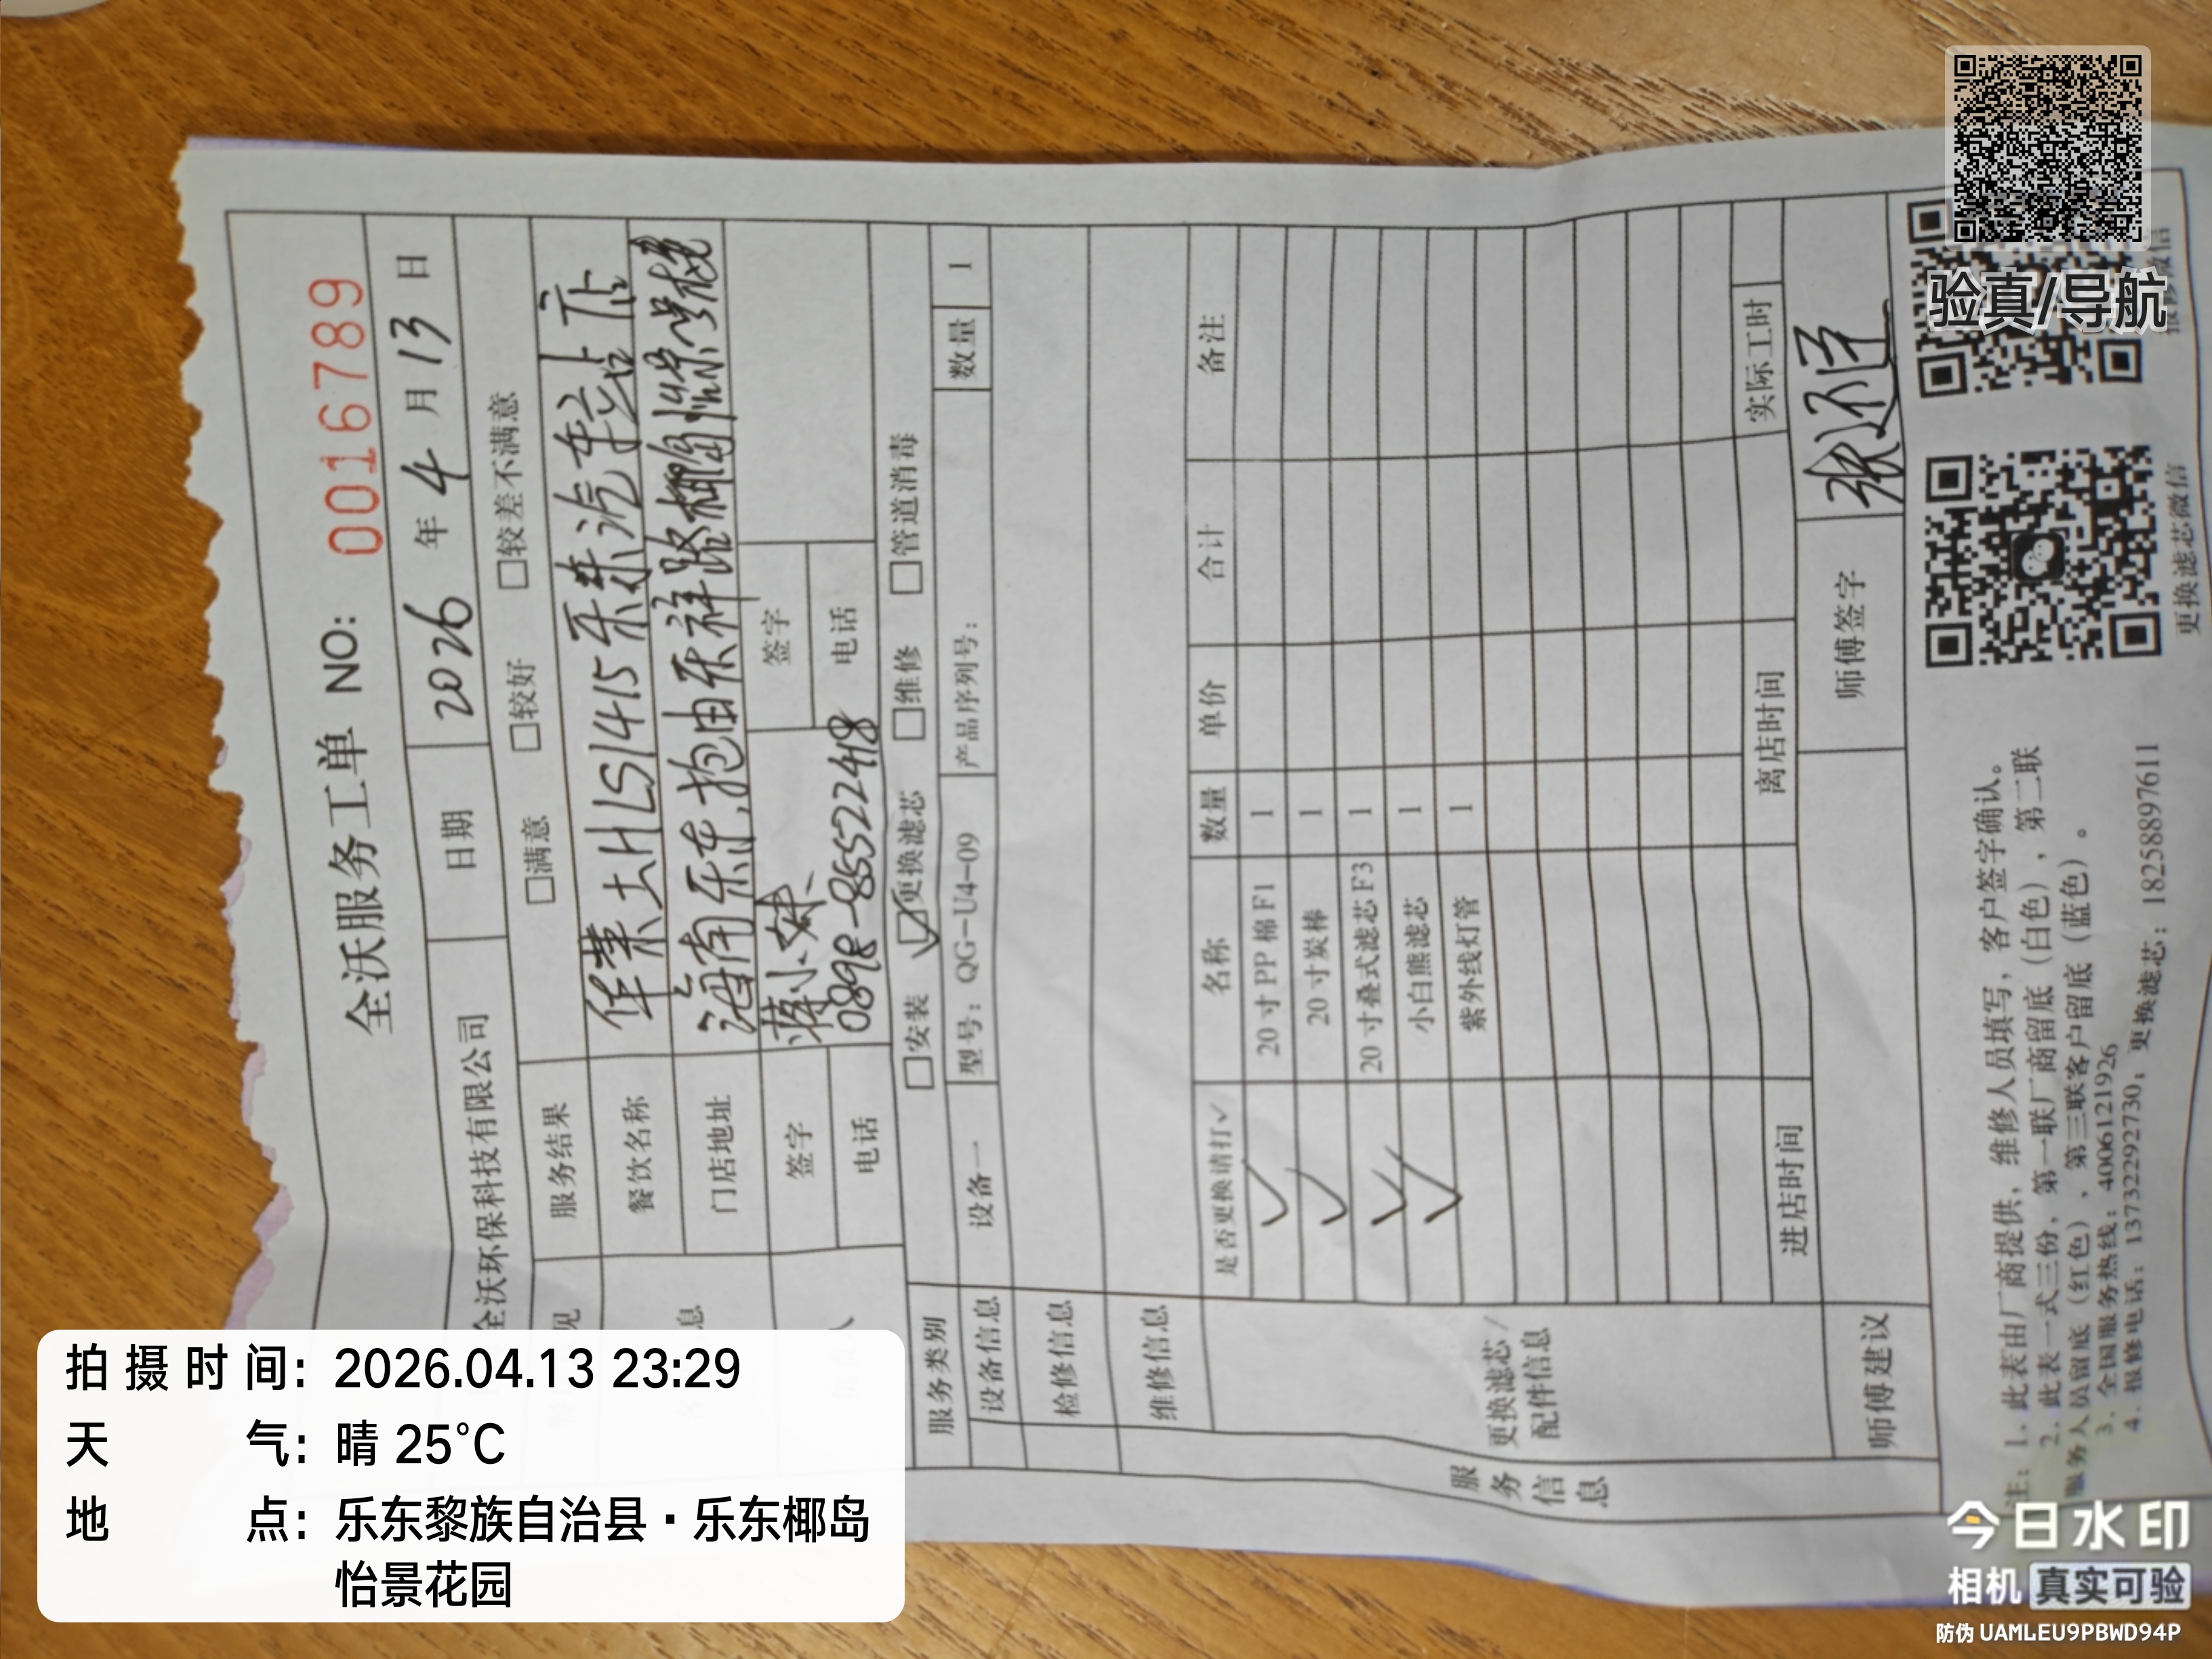 全沃服务工单 NO: 0016789
全沃环保科技有限公司 日期 2026 年 4 月 13 日
服务结果 □满意 □较好 □较差不满意
餐饮名称 华莱士HLS1415乐东汽车站店
门店地址 海南乐东,抱由乐祥路椰岛怡景
签字 蒋小妹 签字
电话 0898-85522448 电话
服务类别 □安装 ☑更换滤芯 □维修 □管道消毒
设备信息 设备一 型号：QG-U4-09 产品序列号： 数量 1
检修信息
维修信息
服务信息
更换滤芯/配件信息
是否更换请打✓ 名称 数量 单价 合计 备注
✓ 20寸PP棉F1 1
✓ 20寸炭棒 1
✓ 20寸叠式滤芯F3 1
✓ 小白熊滤芯 1
紫外线灯管 1
进店时间 离店时间 实际工时
师傅建议 师傅签字
注：1. 此表由厂商提供，维修人员填写，客户签字确认。
2. 此表一式三份，第一联厂商留底（白色），第二联
服务人员留底（红色），第三联客户留底（蓝色）。
3. 全国服务热线：4006121926
4. 报修电话：13732292730；更换滤芯：18258897611
更换滤芯微信
报修微信
验真/导航
拍摄时间：2026.04.13 23:29
天气：晴 25°C
地点：乐东黎族自治县·乐东椰岛
怡景花园
今日水印
相机 真实可验
防伪 UAMLEU9PBWD94P